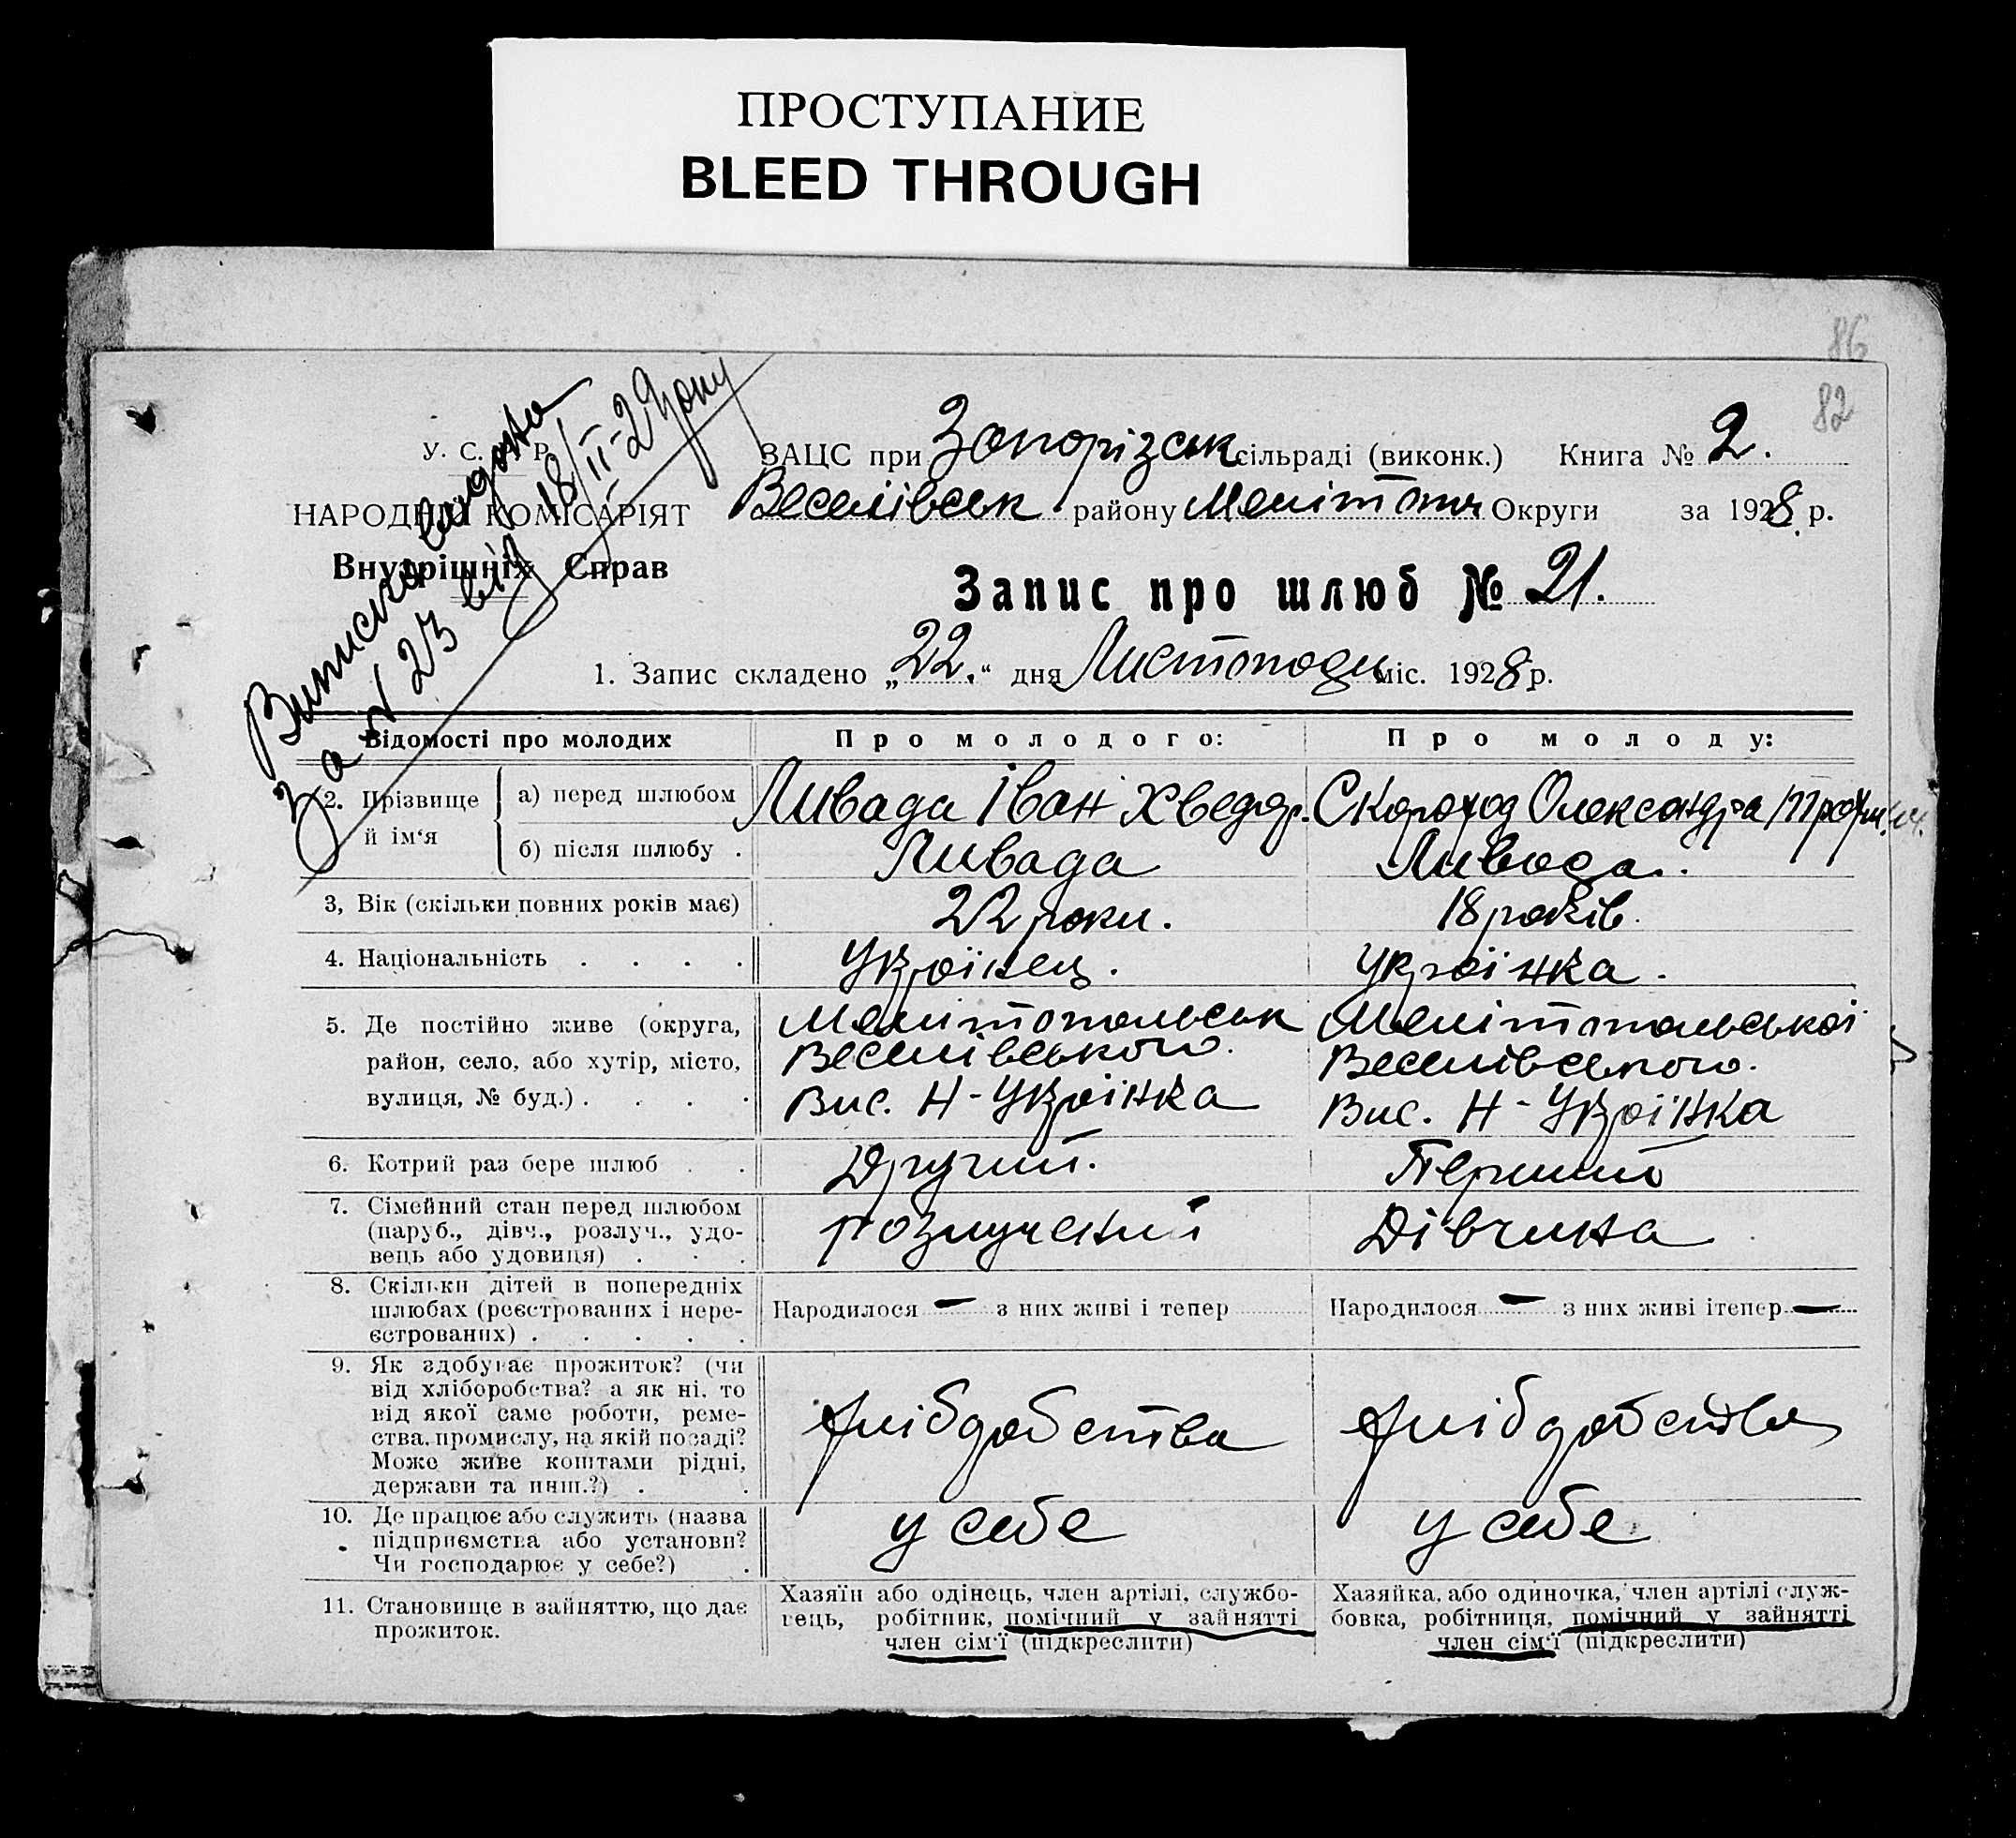 ПРОСТУПАНИЕ
BLEED THROUGH
86
82
Виписка видана
за № 23 від 18/II-29 року
У. С. Р. Р.
НАРОДНІЙ КОМІСАРІЯТ
Внутрішніх Справ
ЗАЦС при Запорізськ сільраді (виконк.) Книга № 2.
Веселівськ району Мелітоп Округи за 1928 р.
Запис про шлюб № 21.
1. Запис складено „22.“ дня Листопада міс. 1928 р.
Відомості про молодих
Про молодого:
Про молоду:
2. Прізвище й ім‘я
а) перед шлюбом
Ливада Іван Хведор. Скороход Олександра
б) після шлюбу .
Ливада Ливада.
3, Вік (скільки повних років має)
22 роки. 18 років.
4. Національність . . . .
Українец. Українка.
5. Де постійно живе (округа,
район, село, або хутір, місто,
вулиця, № буд.) . . . .
Мелітопольськ
Веселівського.
Вис. Н-Українка
Мелітопольськоі
Веселівського.
Вис. Н-Українка
6. Котрий раз бере шлюб . .
Другий. Перший
7. Сімейний стан перед шлюбом
(паруб., дівч., розлуч., удо-
вець або удовиця) . . .
розлучений Дівчина
8. Скільки дітей в попередніх
шлюбах (реєстрованих і нере-
єстрованих) . . . . .
Народилося — з них живі і тепер
Народилося — з них живі ітепер —
9. Як здобуває прожиток? (чи
від хліборобства? а як ні, то
від якої саме роботи, реме-
ства, промислу, на якій посаді?
Може живе коштами рідні,
держави та инш.?) . .
хлібробства хлібробства
10. Де працює або служить (назва
підприємства або установи?
Чи господарює у себе?) .
у себе у себе
11. Становище в зайняттю, що дає
прожиток.
Хазяїн або одінець, член артілі, службо-
вець, робітник, помічний у зайнятті
член сім‘ї (підкреслити)
Хазяйка, або одиночка, член артілі служ-
бовка, робітниця, помічний у зайнятті
член сім‘ї (підкреслити)